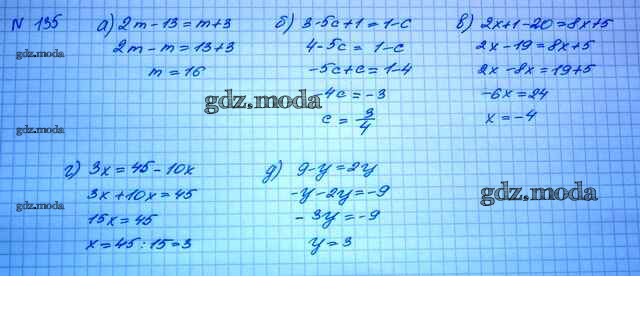 N 135
а) 2m - 13 = m + 3
2m - m = 13 + 3
m = 16
б) 3 - 5c + 1 = 1 - c
4 - 5c = 1 - c
-5c + c = 1 - 4
-4c = -3
c = 3/4
в) 2x + 1 - 20 = 8x + 5
2x - 19 = 8x + 5
2x - 8x = 19 + 5
-6x = 24
x = -4
г) 3x = 45 - 10x
3x + 10x = 45
15x = 45
x = 45 : 15 = 3
д) 9 - y = 2y
-y - 2y = -9
-3y = -9
y = 3
gdz.moda
gdz.moda
gdz.moda
gdz.moda
gdz.moda